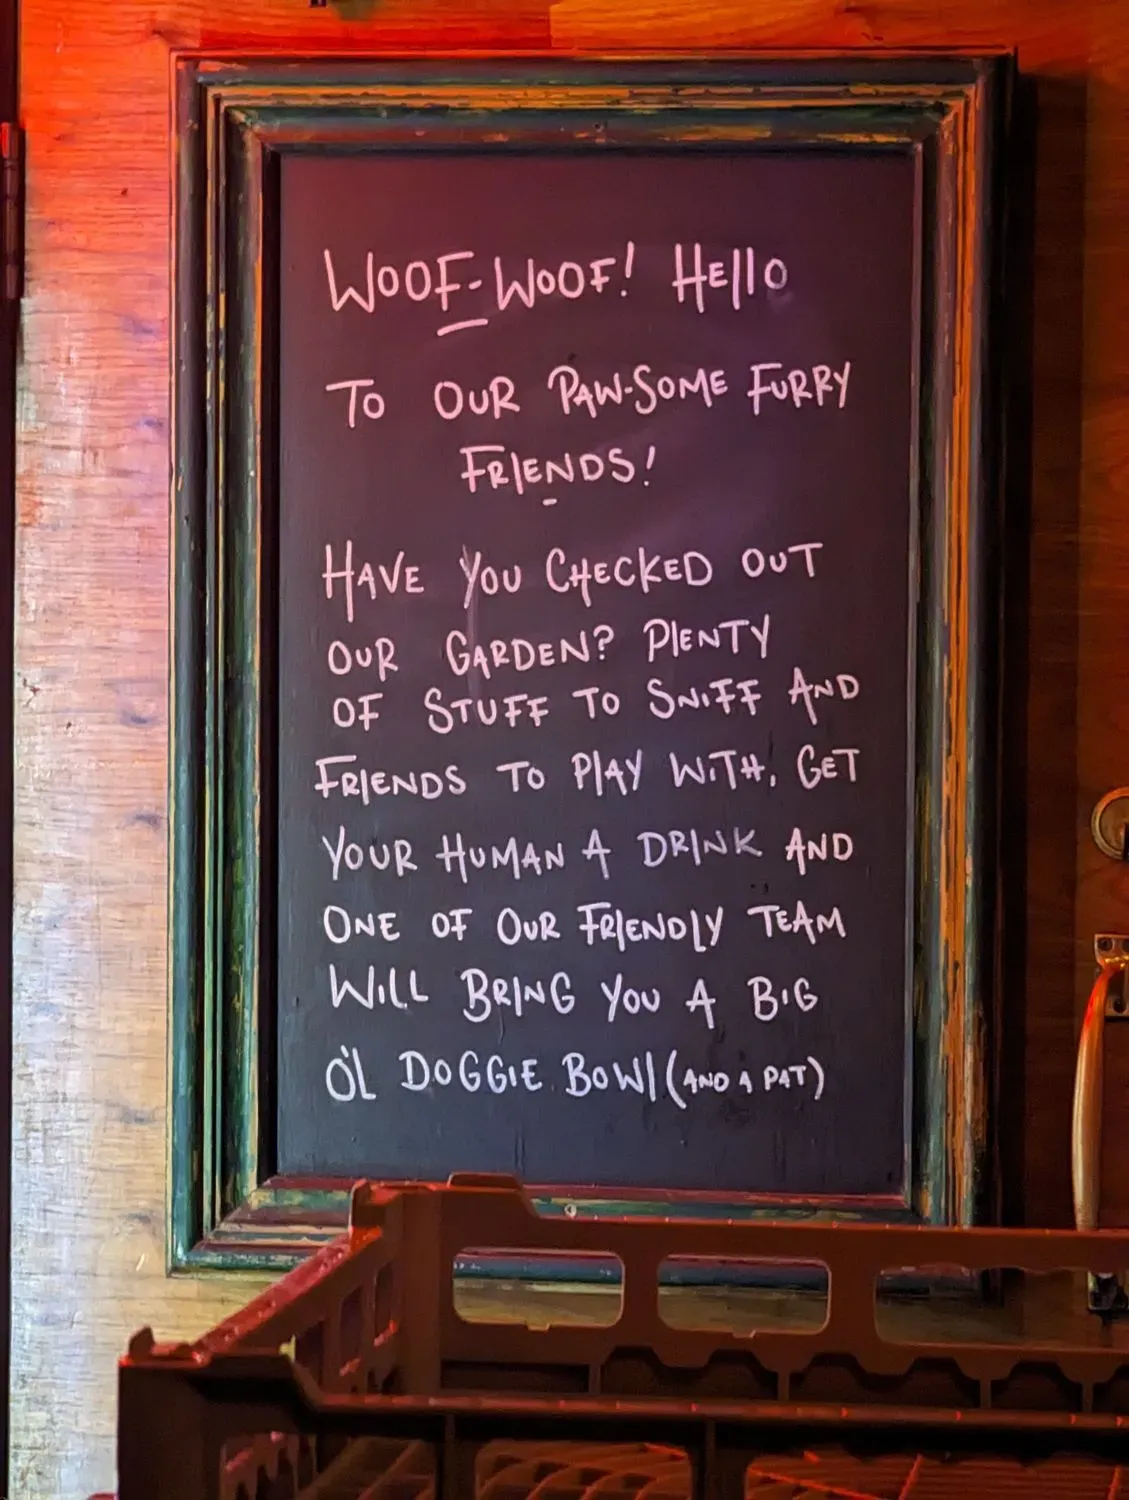 Woof-Woof! Hello
To our Paw-some Furry
Friends!
Have you checked out
our Garden? Plenty
of stuff to sniff and
friends to play with. Get
your human a drink and
one of our friendly team
will bring you a big
o'l doggie bowl (and a pat)